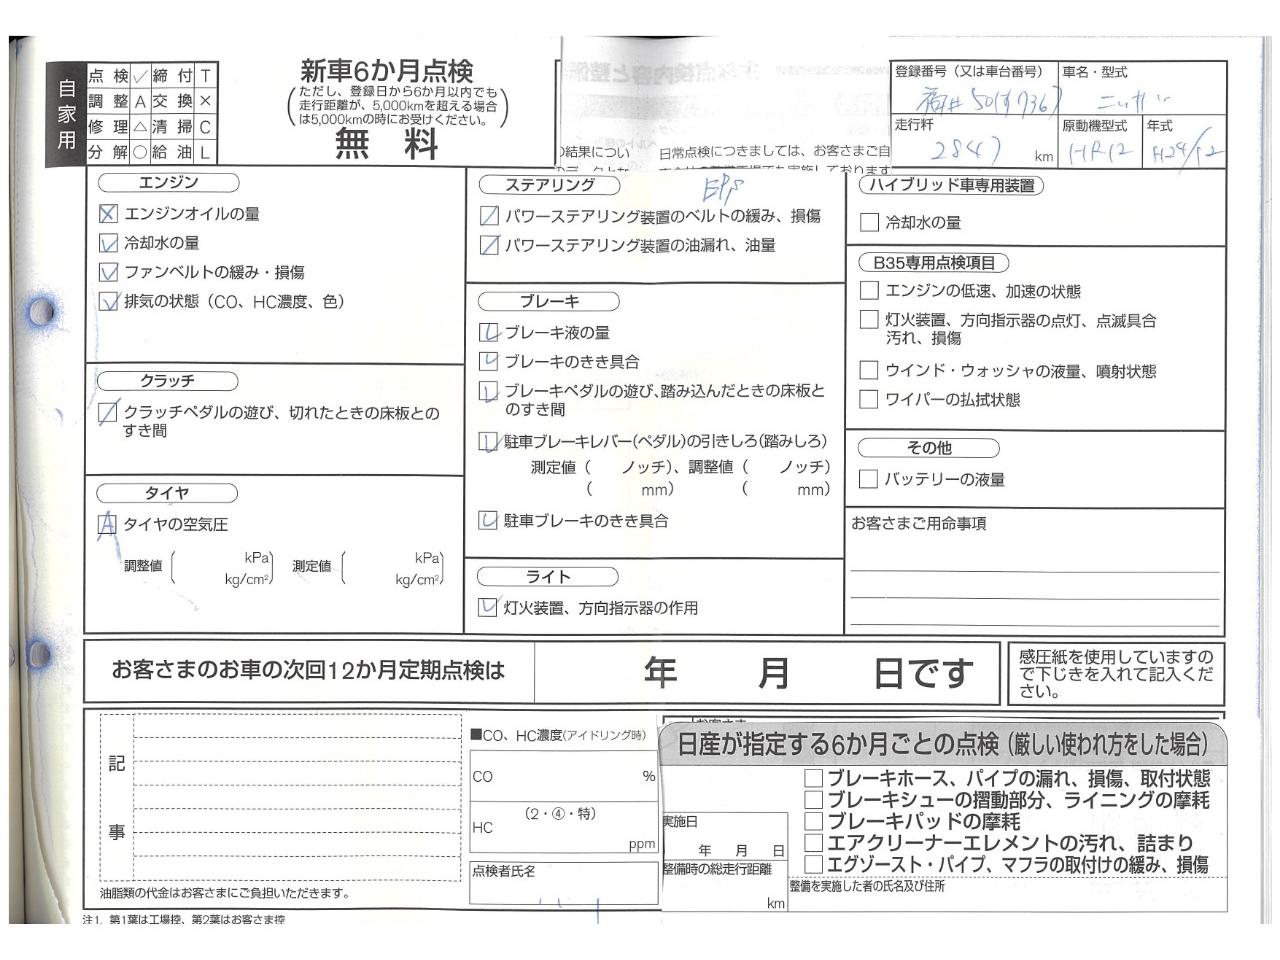 自家用
点検 ✓ 締付 T
調整 A 交換 ×
修理 △ 清掃 C
分解 ○ 給油 L
新車6か月点検
(ただし、登録日から6か月以内でも
走行距離が、5,000kmを超える場合
は5,000kmの時にお受けください。)
無料
の結果につい
日常点検につきましては、お客さまご自
登録番号(又は車台番号)
福井 501す7367
車名・型式
ニッサン
走行粁
2847 km
原動機型式
HR12
年式
H24/12
エンジン
エンジンオイルの量
冷却水の量
ファンベルトの緩み・損傷
排気の状態(CO、HC濃度、色)
クラッチ
クラッチペダルの遊び、切れたときの床板との
すき間
タイヤ
A タイヤの空気圧
調整値 ( kPa kg/cm²) 測定値 ( kPa kg/cm²)
ステアリング
EPS
パワーステアリング装置のベルトの緩み、損傷
パワーステアリング装置の油漏れ、油量
ブレーキ
ブレーキ液の量
ブレーキのきき具合
ブレーキペダルの遊び、踏み込んだときの床板と
のすき間
駐車ブレーキレバー(ペダル)の引きしろ(踏みしろ)
測定値( ノッチ)、調整値( ノッチ)
( mm) ( mm)
駐車ブレーキのきき具合
ライト
灯火装置、方向指示器の作用
ハイブリッド車専用装置
冷却水の量
B35専用点検項目
エンジンの低速、加速の状態
灯火装置、方向指示器の点灯、点滅具合
汚れ、損傷
ウインド・ウォッシャの液量、噴射状態
ワイパーの払拭状態
その他
バッテリーの液量
お客さまご用命事項
お客さまのお車の次回12か月定期点検は 年 月 日です
感圧紙を使用していますの
で下じきを入れて記入くだ
さい。
記事
油脂類の代金はお客さまにご負担いただきます。
注1. 第1葉は工場控、第2葉はお客さま控
■CO、HC濃度(アイドリング時)
CO %
(2・④・特)
HC ppm
点検者氏名
日産が指定する6か月ごとの点検(厳しい使われ方をした場合)
ブレーキホース、パイプの漏れ、損傷、取付状態
ブレーキシューの摺動部分、ライニングの摩耗
ブレーキパッドの摩耗
エアクリーナーエレメントの汚れ、詰まり
エグゾースト・パイプ、マフラの取付けの緩み、損傷
実施日
年 月 日
整備時の総走行距離
km
整備を実施した者の氏名及び住所